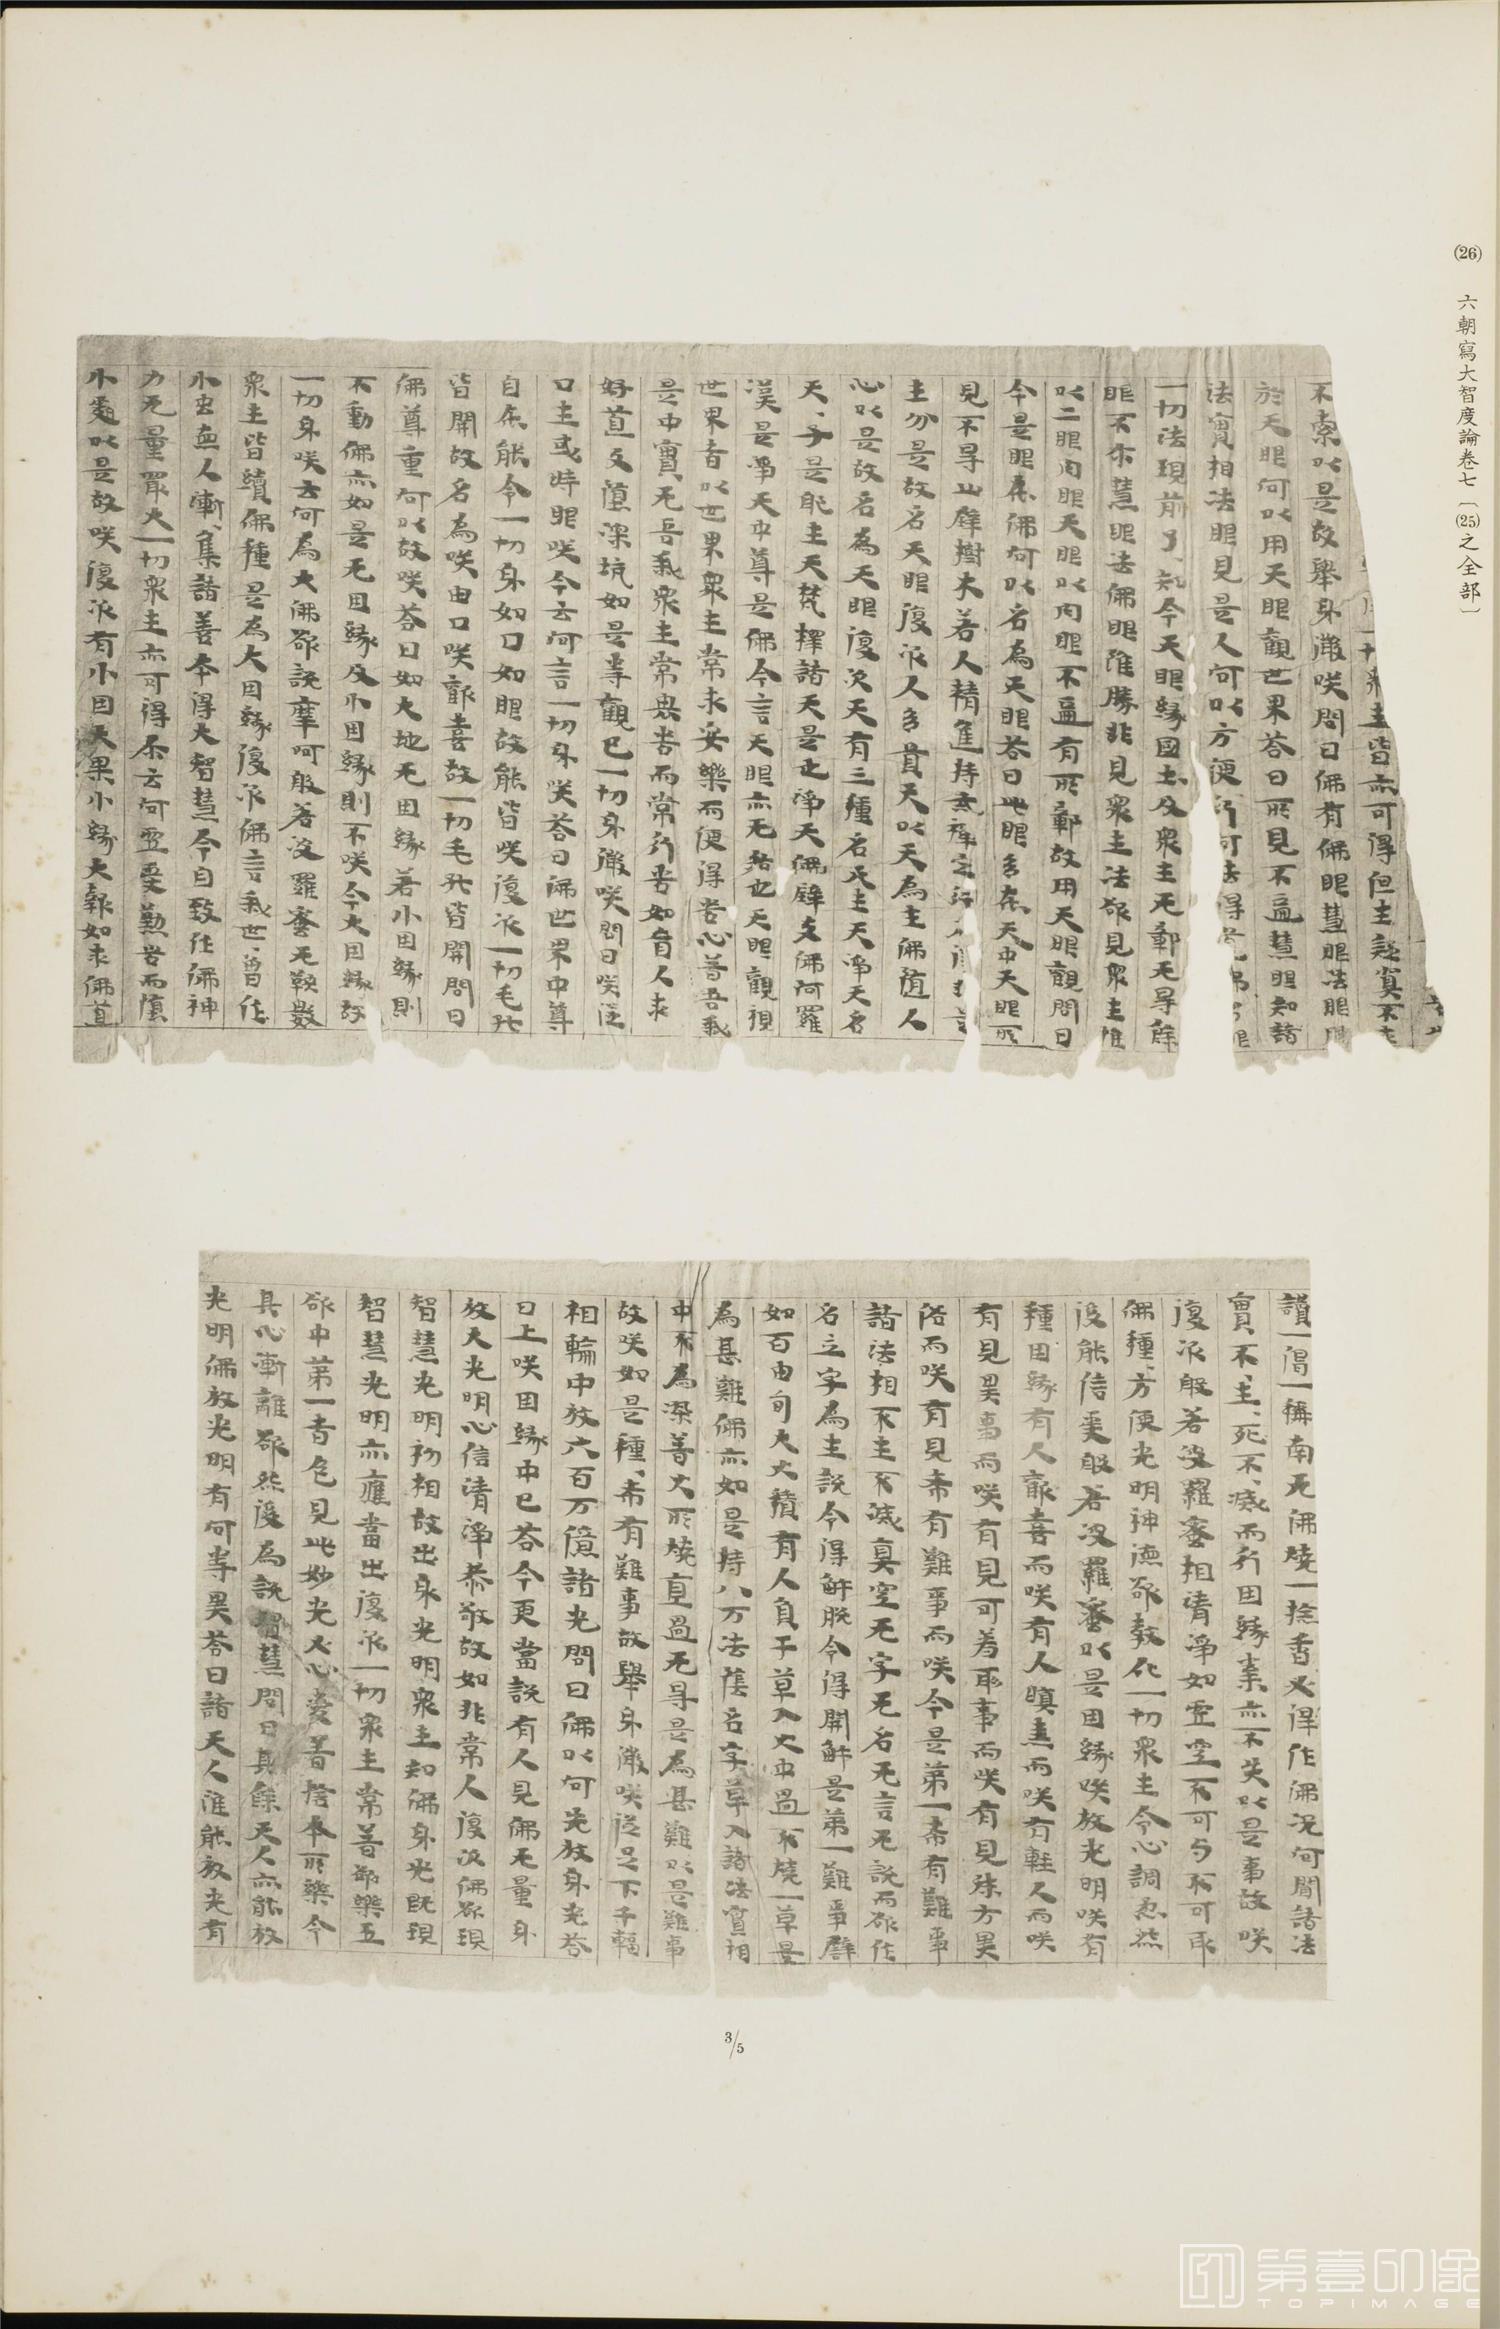 (26) 六朝寫大智度論卷七〔(25)之全部〕
一切衆生皆亦可得但生疑實不在
不索以是故舉身微咲問曰佛有佛眼慧眼法眼勝
於天眼何以用天眼觀世界荅曰所見不遍慧眼知諸
法實相法眼見是人何以方便行何法得道佛眼
一切法現前了、知今天眼緣國土及衆生无鄣无㝵餘
眼不尒慧眼法佛眼雖勝非見衆生法欲見衆生唯
以二眼肉眼天眼以肉眼不遍有所鄣故用天眼觀問曰
今是眼在佛何以名為天眼荅曰此眼多在天中天眼所
見不㝵山壁樹木若人精進持戒禪定行
生分是故名天眼復次人多貴天以天為主佛隨人
心以是故名為天眼復次天有三種名天生天淨天名
天、子是能生天梵釋諸天是也淨天佛辟支佛阿羅
漢是淨天中尊是佛今言天眼亦无咎也天眼觀視
世界者以世界衆生常求安樂而便得苦心著吾我
是中實无吾我衆生常畏苦而常行苦如盲人求
好道反墮深坑如是等觀已一切身微咲問曰咲從
口生或時眼咲今云何言一切身咲荅曰佛世界中尊
自在能令一切身如口如眼故能皆咲復次一切毛孔
皆開故名為咲由口咲歡喜故一切毛孔皆開問曰
佛尊重何以故咲荅曰如大地无因緣若小因緣則
不動佛亦如是无因緣及小因緣則不咲今大因緣故
一切身咲云何為大佛欲說摩呵般若波羅蜜无鞅數
衆生皆續佛種是為大因緣復次佛言我世、曾作
小虫惡人漸、集諸善本得大智慧今自致作佛神
力无量最大一切衆生亦可得尒云何空受懃苦而墮
小處以是故咲復次有小因大果小緣大報如求佛道
讚一偈一稱南无佛燒一捻香必得作佛況何聞諸法
實不、生、死不、滅而行因緣業亦不失以是事故咲
復次般若波羅蜜相清淨如虛空不可与不可取
佛種、方便光明神德欲教化一切衆生令心調柔然
後能信受般若波羅蜜以是因緣咲放光明咲有
種、因緣有人歡喜而咲有人瞋恚而咲有輕人而咲
有見異事而咲有見可羞恥事而咲有見殊方異
俗而咲有見希有難事而咲今是第一希有難事
諸法相不生不滅真空无字无名无言无說而欲作
名立字為生說令得解脫令得開解是第一難事譬
如百由旬大火積有人負干草入火中過不燒一草是
為甚難佛亦如是持八万法蔭名字草入諸法實相
中不為深著火所燒直過无㝵是為甚難以是難事
故咲如是種、希有難事故舉身微咲從足下千輻
相輪中放六百万億諸光問曰佛以何光放身光荅
曰上咲因緣中已荅今更當說有人見佛无量身
放大光明心信清淨恭敬故如非常人復次佛欲現
智慧光明初相故出身光明衆生知佛身光既現
智慧光明亦應當出復次一切衆生常著欲樂五
欲中第一者色見此妙光必心愛著捨本所樂令
其心漸離欲然後為說智慧問曰其餘天人亦能放
光明佛放光明有何等異荅曰諸天人雖能放光有
3/5
第壹印像
TOPIMAGE